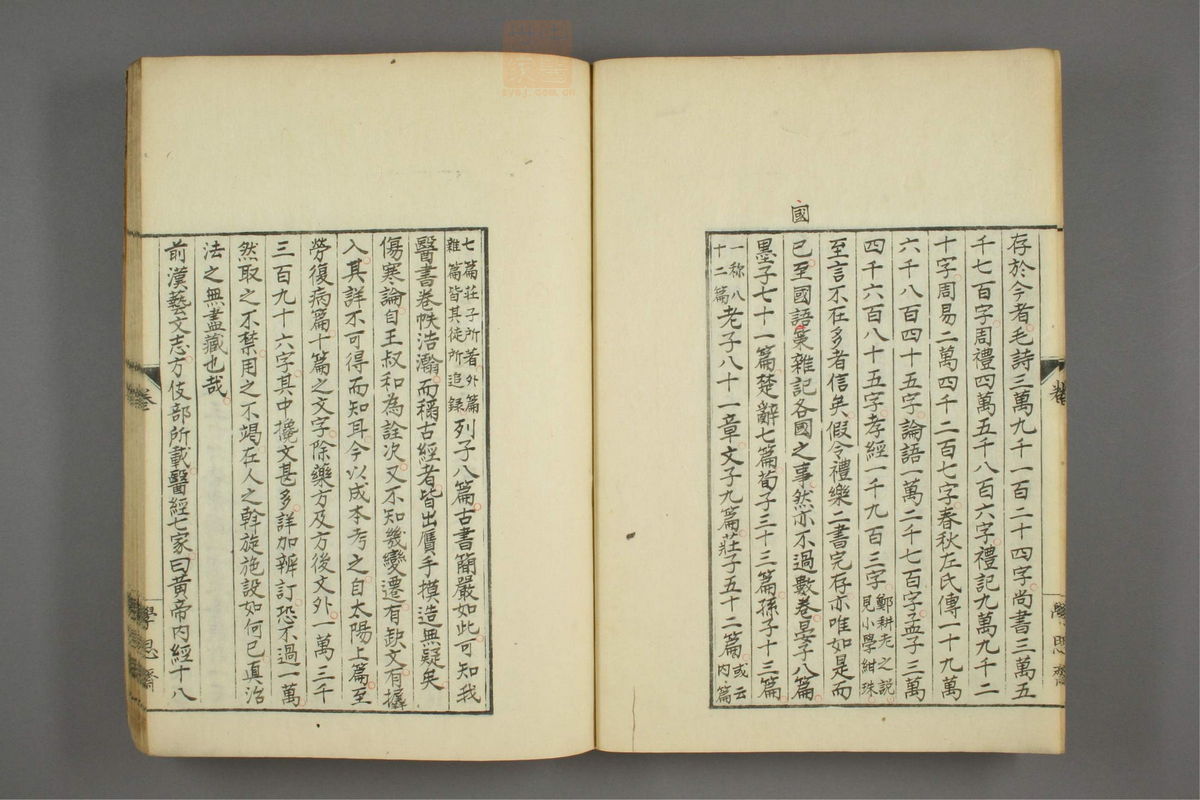 國
存於今者毛詩三萬九千一百二十四字尚書三萬五
千七百字周禮四萬五千八百六字禮記九萬九千二
十字周易二萬四千二百七字春秋左氏傳一十九萬
六千八百四十五字論語一萬二千七百字孟子三萬
四千六百八十五字孝經一千九百三字鄭耕老之說見小學紺珠
至言不在多者信矣假令禮樂二書完存亦唯如是而
已至國語策雜記各國之事然亦不過數卷晏子八篇
墨子七十一篇楚辭七篇荀子三十三篇孫子十三篇
一称八十二篇老子八十一章文子九篇莊子五十二篇或云内篇
七篇莊子所著外篇雜篇皆其徒所追錄列子八篇古書簡嚴如此可知我
醫書卷帙浩瀚而稱古經者皆出贋手摸造無疑矣
傷寒論自王叔和為詮次又不知幾變遷有缺文有攙
入其詳不可得而知耳今以成本考之自太陽上篇至
勞復病篇十篇之文字除藥方及方後文外一萬三千
三百九十六字其中攙文甚多詳加辨訂恐不過一萬
然取之不禁用之不竭在人之斡旋施設如何已真治
法之無盡藏也哉
前漢藝文志方伎部所載醫經七家曰黃帝内經十八
卷
學思齋